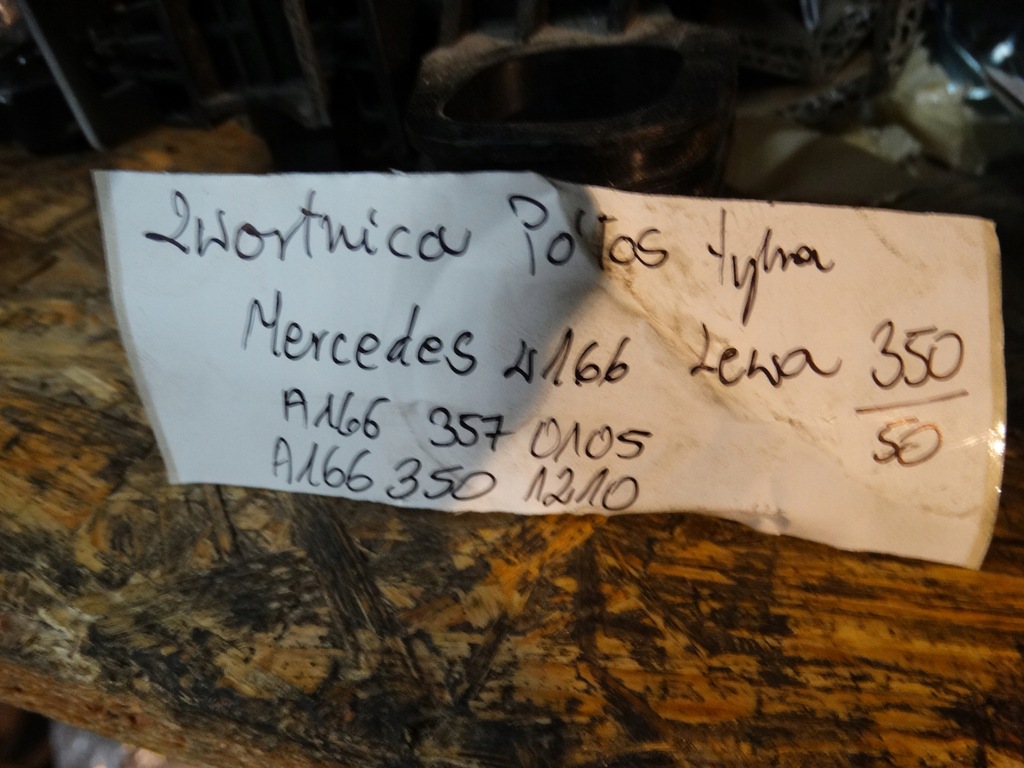 Zwortnica Półoś tylna
Mercedes W166 Lewa 350
50
A166 357 0105
A166 350 1210